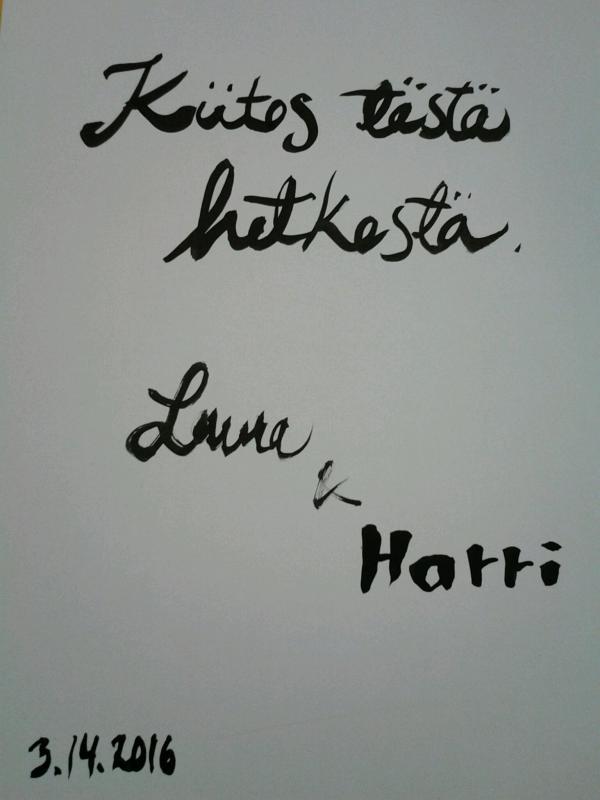 Kiitos tästä
hetkestä.
Laura
&
Harri
3.14.2016